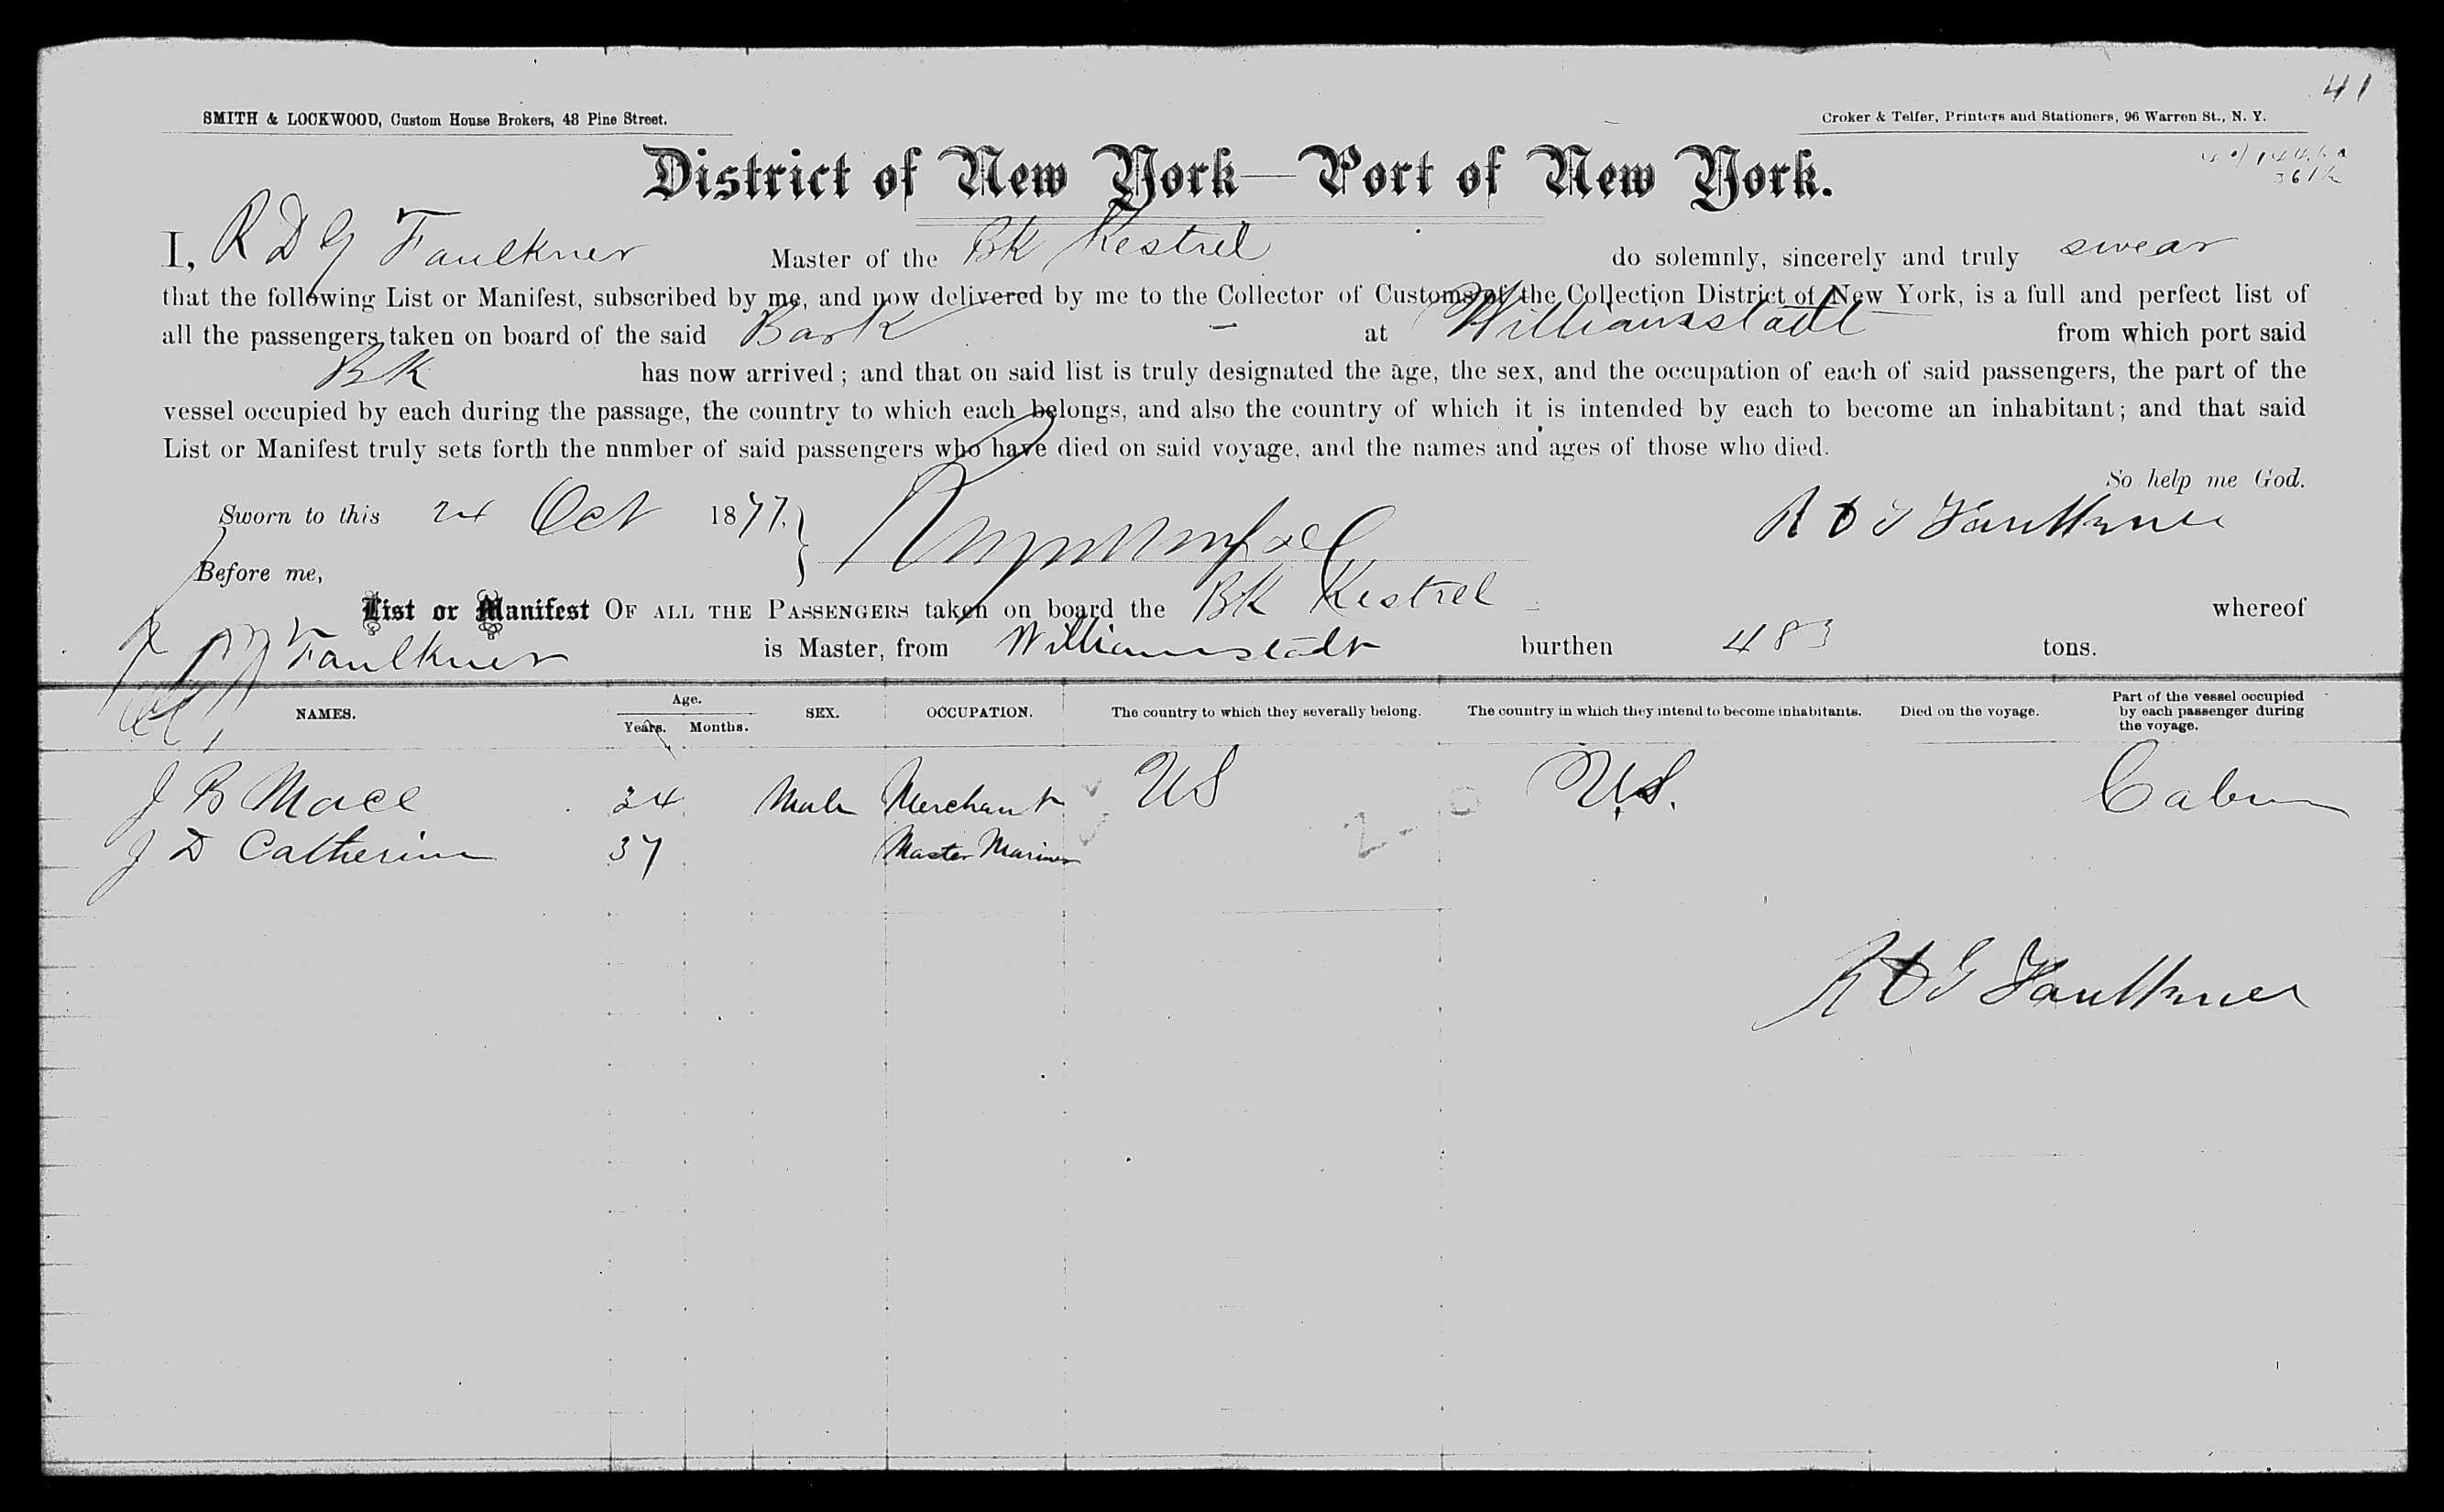 41
SMITH & LOCKWOOD, Custom House Brokers, 48 Pine Street.
Croker & Telfer, Printers and Stationers, 96 Warren St., N. Y.
District of New York—Port of New York.
I, R D G Faulkner Master of the Bk Kestrel do solemnly, sincerely and truly swear
that the following List or Manifest, subscribed by me, and now delivered by me to the Collector of Customs of the Collection District of New York, is a full and perfect list of
all the passengers taken on board of the said Bark at Williamstadt from which port said
Bk has now arrived; and that on said list is truly designated the age, the sex, and the occupation of each of said passengers, the part of the
vessel occupied by each during the passage, the country to which each belongs, and also the country of which it is intended by each to become an inhabitant; and that said
List or Manifest truly sets forth the nnmber of said passengers who have died on said voyage, and the names and ages of those who died.
So help me God.
Sworn to this 24 Oct 1877. R D G Faulkner
Before me,
List or Manifest OF ALL THE PASSENGERS taken on board the Bk Kestrel whereof
Faulkner is Master, from Williamstadt burthen 483 tons.
NAMES. Age. Years. Months. SEX. OCCUPATION. The country to which they severally belong. The country in which they intend to become inhabitants. Died on the voyage. Part of the vessel occupied by each passenger during the voyage.
J B Mace 24 Male Merchant US U.S. Cabin
J D Catherine 37 Master Mariner 2
R D G Faulkner